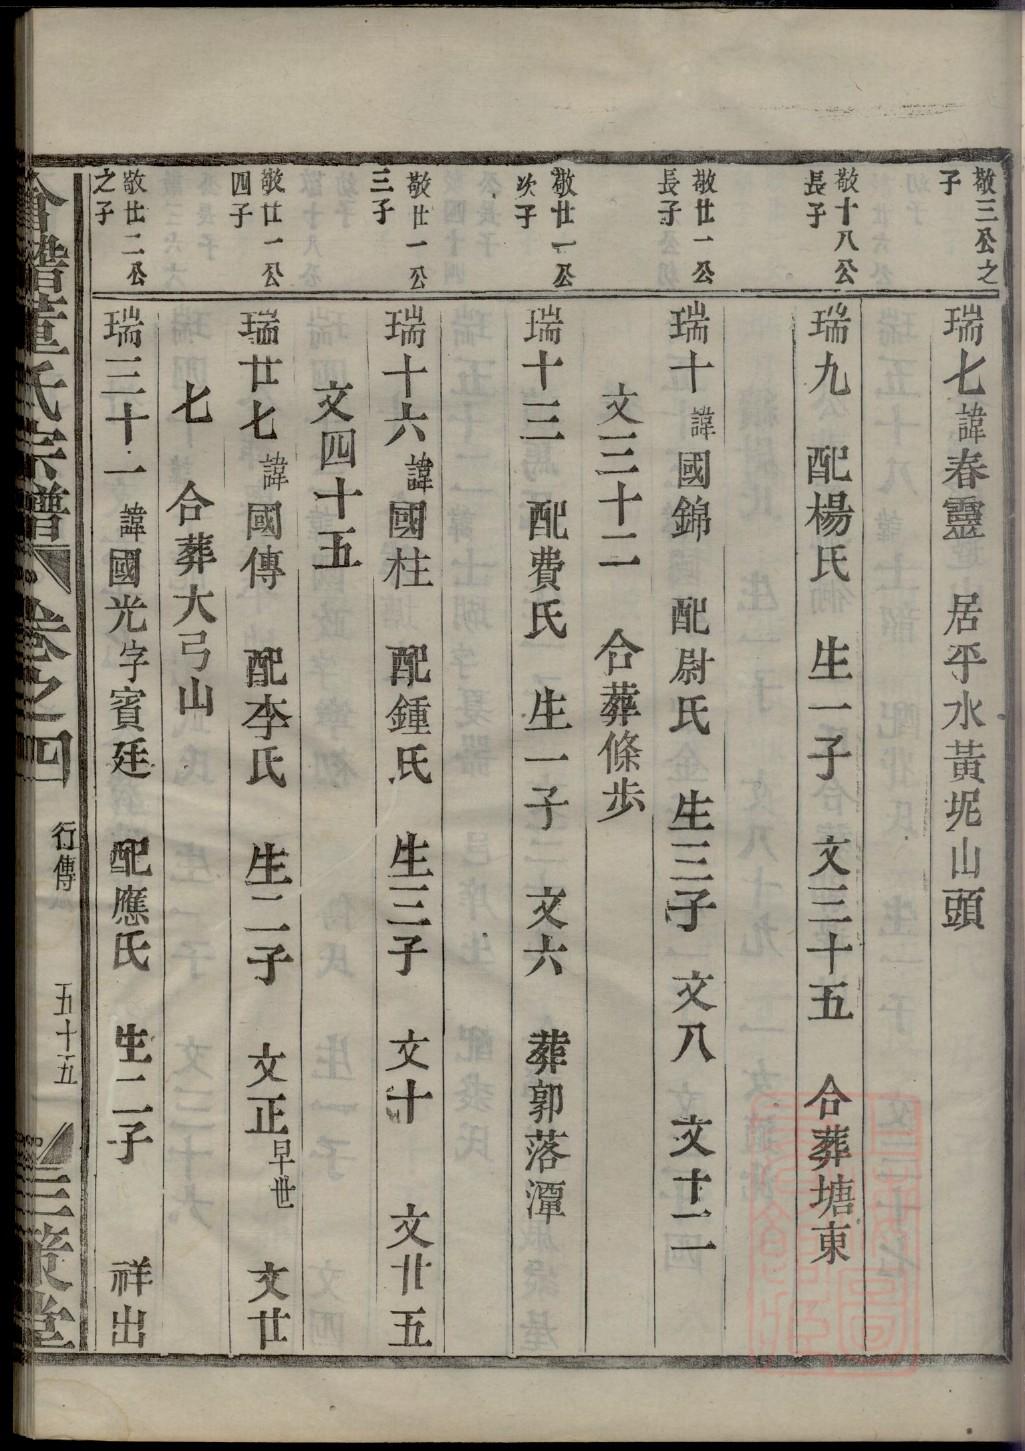 敬三公之
子
瑞七諱春靈 居平水黃坭山頭
敬十八公
長子
瑞九 配楊氏 生一子 文三十五 合葬塘東
敬廿一公
長子
瑞十諱國錦 配尉氏 生三子 文八 文十二
文三十二 合葬條步
敬廿一公
次子
瑞十三 配費氏 生一子 文六 葬郭落潭
敬廿一公
三子
瑞十六諱國柱 配鍾氏 生三子 文十 文廿五
文四十五
敬廿一公
四子
瑞廿七諱國傳 配李氏 生二子 文正早世 文廿
七 合葬大弓山
敬廿二公
之子
瑞三十一諱國光字賓廷 配應氏 生二子 祥出
會稽董氏宗譜 卷之四 行傳 五十五 三策堂